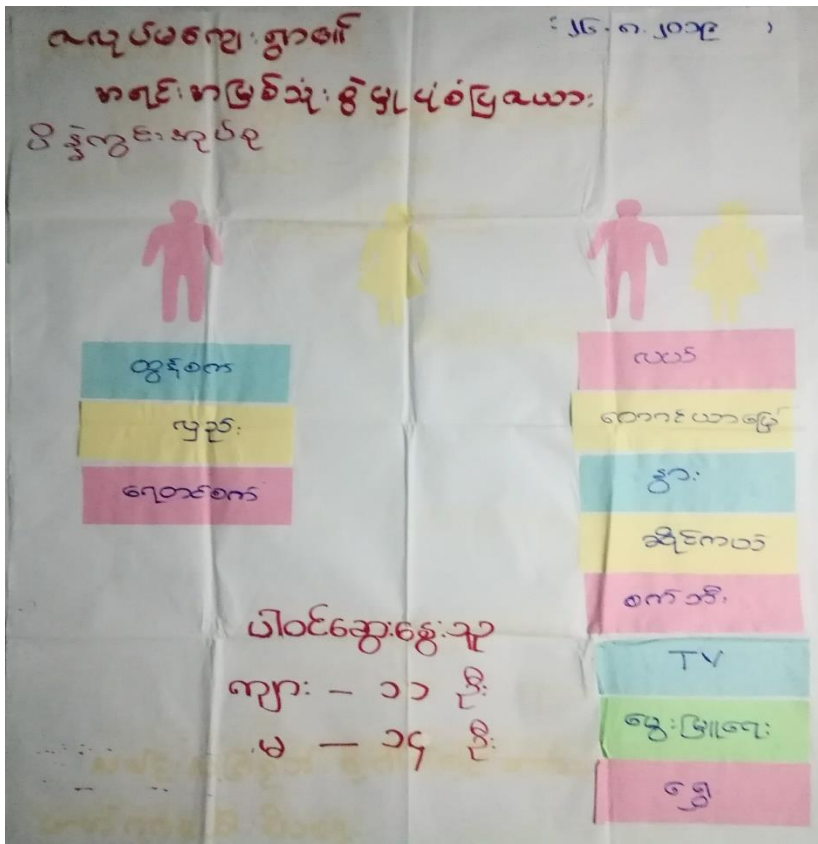 ဇလုပ်မကျေးရွာ၏
(၂၄.၈.၂၀၁၉)
အရင်းအမြစ်သုံးစွဲမှုပုံစံပြဇယား
ထွန်စက်
လှည်း
ရေတင်စက်
လယ်
တောင်ယာမြေ
နွား
ဆိုင်ကယ်
စက်ဘီး
TV
မွေးမြူရေး
ရွှေ
ပါဝင်ဆွေးနွေးသူ
ကျား - ၁၁ ဦး
မ - ၁၄ ဦး